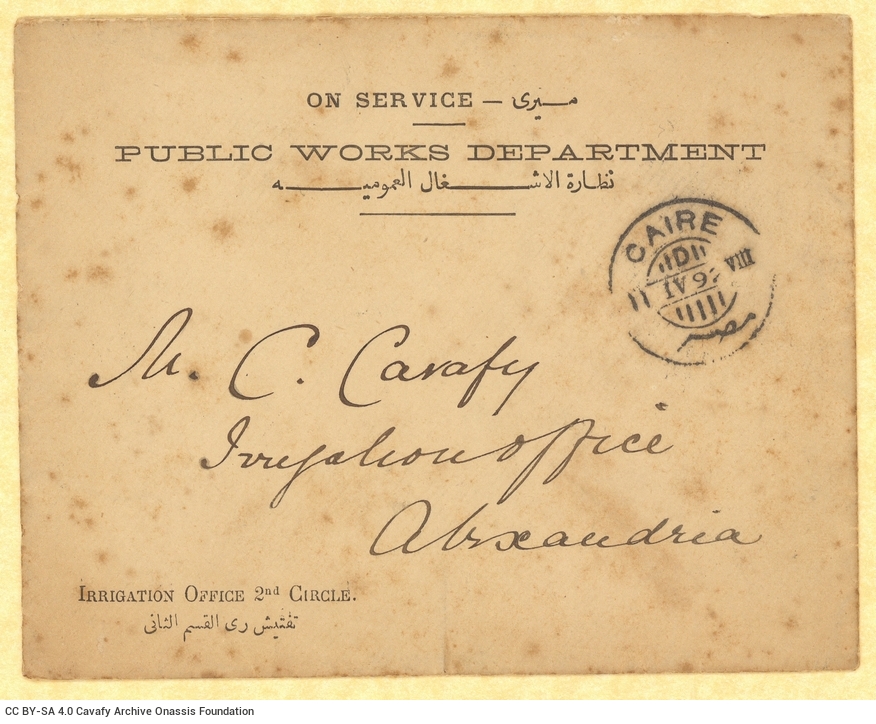 ON SERVICE — ميرى
PUBLIC WORKS DEPARTMENT
نظارة الاشغال العموميه
CAIRE
D
VIII
26 VI 9
مصر
M. C. Cavafy
Irrigation office
Alexandria
IRRIGATION OFFICE 2nd CIRCLE.
تفتيش رى القسم الثانى
CC BY-SA 4.0 Cavafy Archive Onassis Foundation